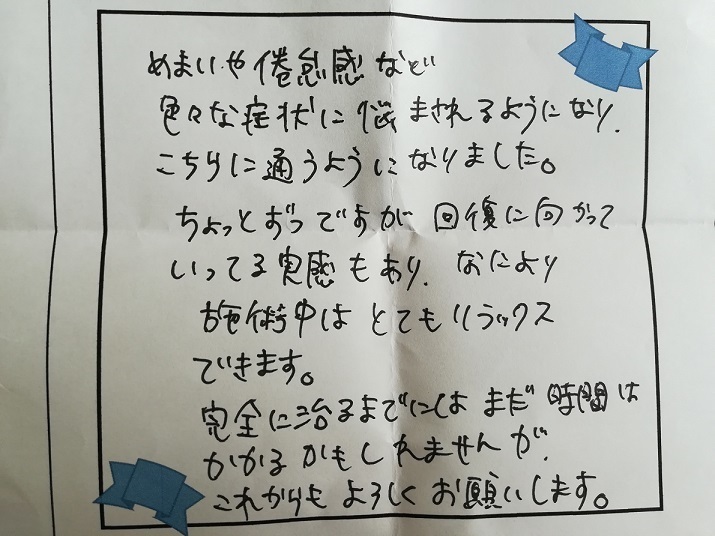 めまいや倦怠感など
色々な症状に悩まされるようになり、
こちらに通うようになりました。
ちょっとずつですが回復に向かって
いってる実感もあり、なにより
施術中はとてもリラックス
できます。
完全に治るまでにはまだ時間は
かかるかもしれませんが、
これからもよろしくお願いします。